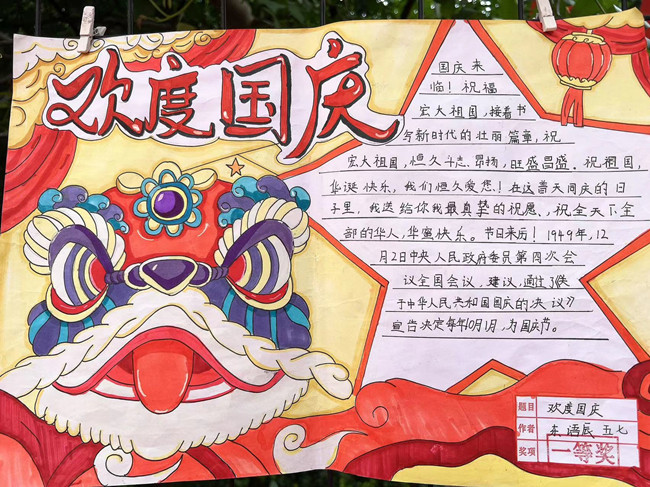 欢度国庆
国庆来
临！祝福
宏大祖国，接着书
写新时代的壮丽篇章，祝
宏大祖国，恒久斗志昂扬，旺盛昌盛．祝祖国，
华诞快乐，我们恒久爱您！在这普天同庆的日
子里，我送给你我最真挚的祝愿、，祝全天下全
部的华人，华蜜快乐。节日来历！1949年，12
月2日中央人民政府委员第四次会
议全国会议，建议，通过了《关
于中华人民共和国国庆的决议》
宣告决定每年10月1日，为国庆节。
题目 欢度国庆
作者 语辰 五七
奖项 一等奖